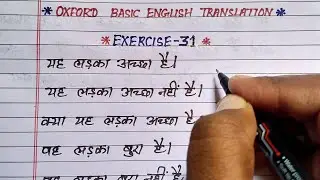 * OXFORD BASIC ENGLISH TRANSLATION *
* EXERCISE-31 *
यह लड़का अच्छा है।
यह लड़का अच्छा नहीं है।
क्या यह लड़का अच्छा है
वह लड़का बुरा है।
वह लड़का बुरा नहीं है